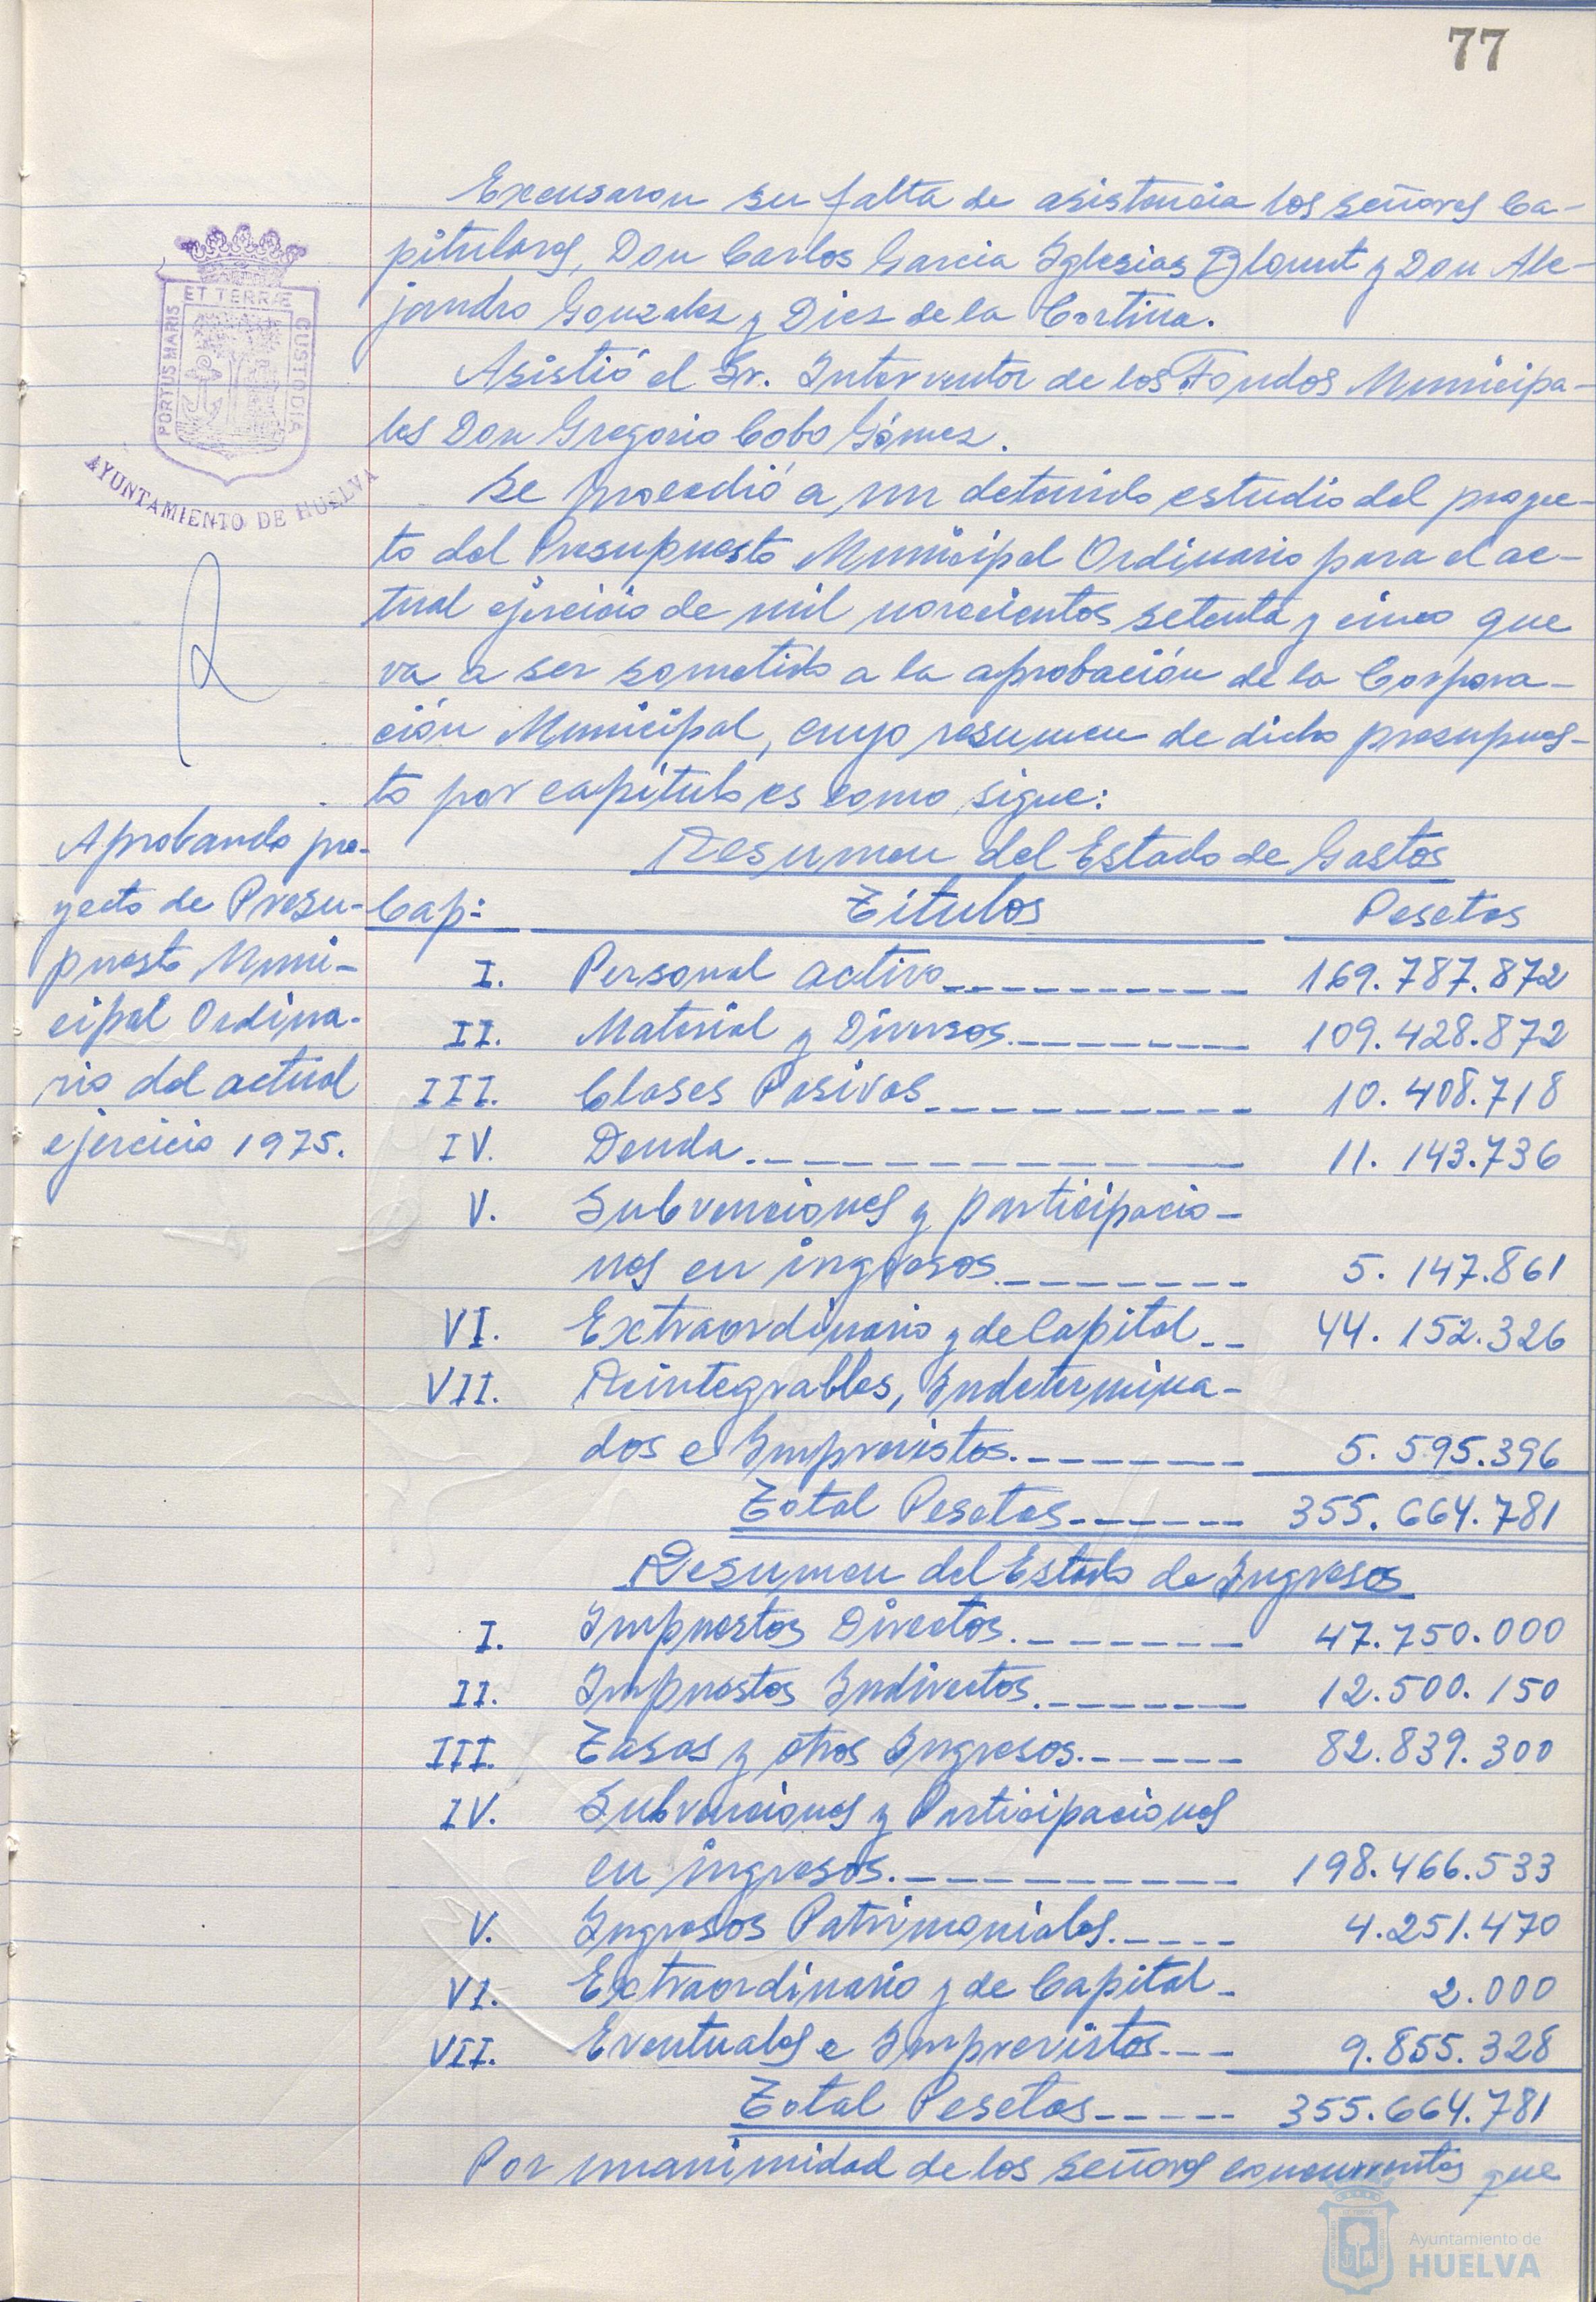 77
Excusaron su falta de asistencia los señores Ca-
pitulares, Don Carlos Garcia Iglesias Blount y Don Ale-
jandro Gonzalez y Diez de la Cortina.
Asistió el Sr. Interventor de los Fondos Municipa-
les Don Gregorio Cobo Gómez.
Se procedió a un detenido estudio del proyec-
to del Presupuesto Municipal Ordinario para el ac-
tual ejercicio de mil novecientos setenta y cinco que
va a ser sometido a la aprobación de la Corpora-
ción Municipal, cuyo resumen de dicho presupues-
to por capitulo es como sigue:
PORTUS MARIS
ET TERRÆ
CUSTODIA
AYUNTAMIENTO DE HUELVA
Aprobando pro-
yecto de Presu-
puesto Muni-
cipal Ordina-
rio del actual
ejercicio 1975.
Resumen del Estado de Gastos
Cap: Títulos Pesetas
I. Personal activo 169.787.872
II. Material y Diversos 109.428.872
III. Clases Pasivas 10.408.718
IV. Deuda 11.143.736
V. Subvenciones y participacio-
nes en ingresos 5.147.861
VI. Extraordinario y de Capital 44.152.326
VII. Reintegrables, Indetermina-
dos e Imprevistos 5.595.396
Total Pesetas 355.664.781
Resumen del Estado de Ingresos
I. Impuestos Directos 47.750.000
II. Impuestos Indirectos 12.500.150
III. Tasas y otros Ingresos 82.839.300
IV. Subvenciones y Participaciones
en ingresos. 198.466.533
V. Ingresos Patrimoniales 4.251.470
VI. Extraordinario y de Capital 2.000
VII. Eventuales e Imprevistos 9.855.328
Total Pesetas 355.664.781
Por unanimidad de los señores concurrentes que
Ayuntamiento de
HUELVA